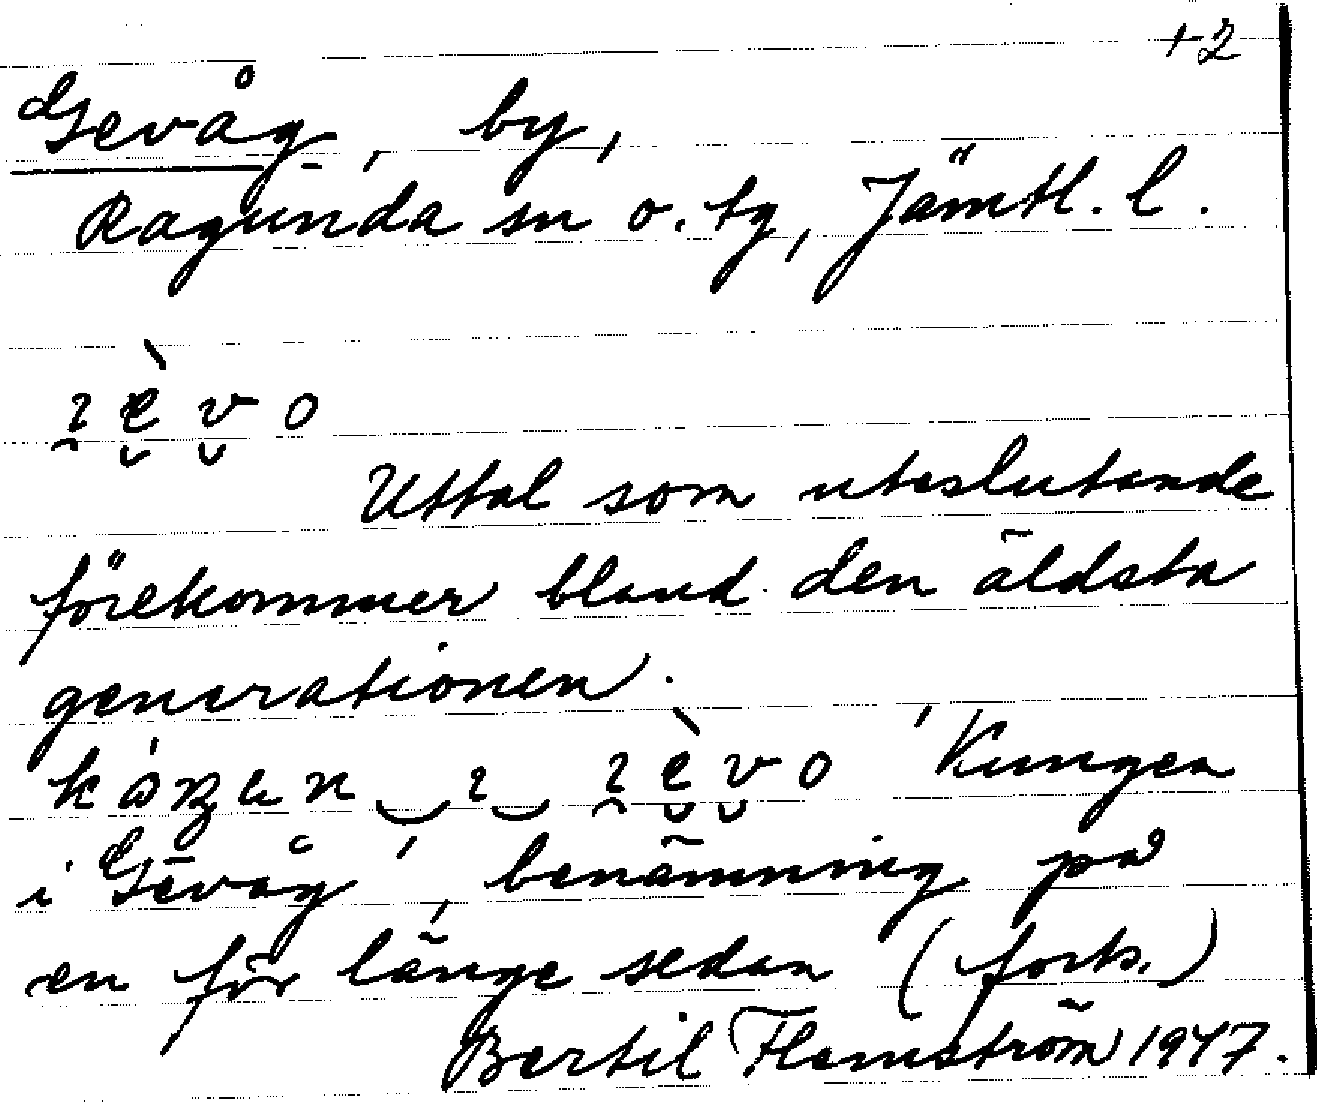 +2
Gevåg, by,
Ragunda sn o. tg, Jämtl. l.
Uttal som uteslutande
förekommer bland den äldsta
generationen.
'Kungen
i Gevåg', benämning på
en för länge sedan (forts.)
Bertil Flemström 1947.